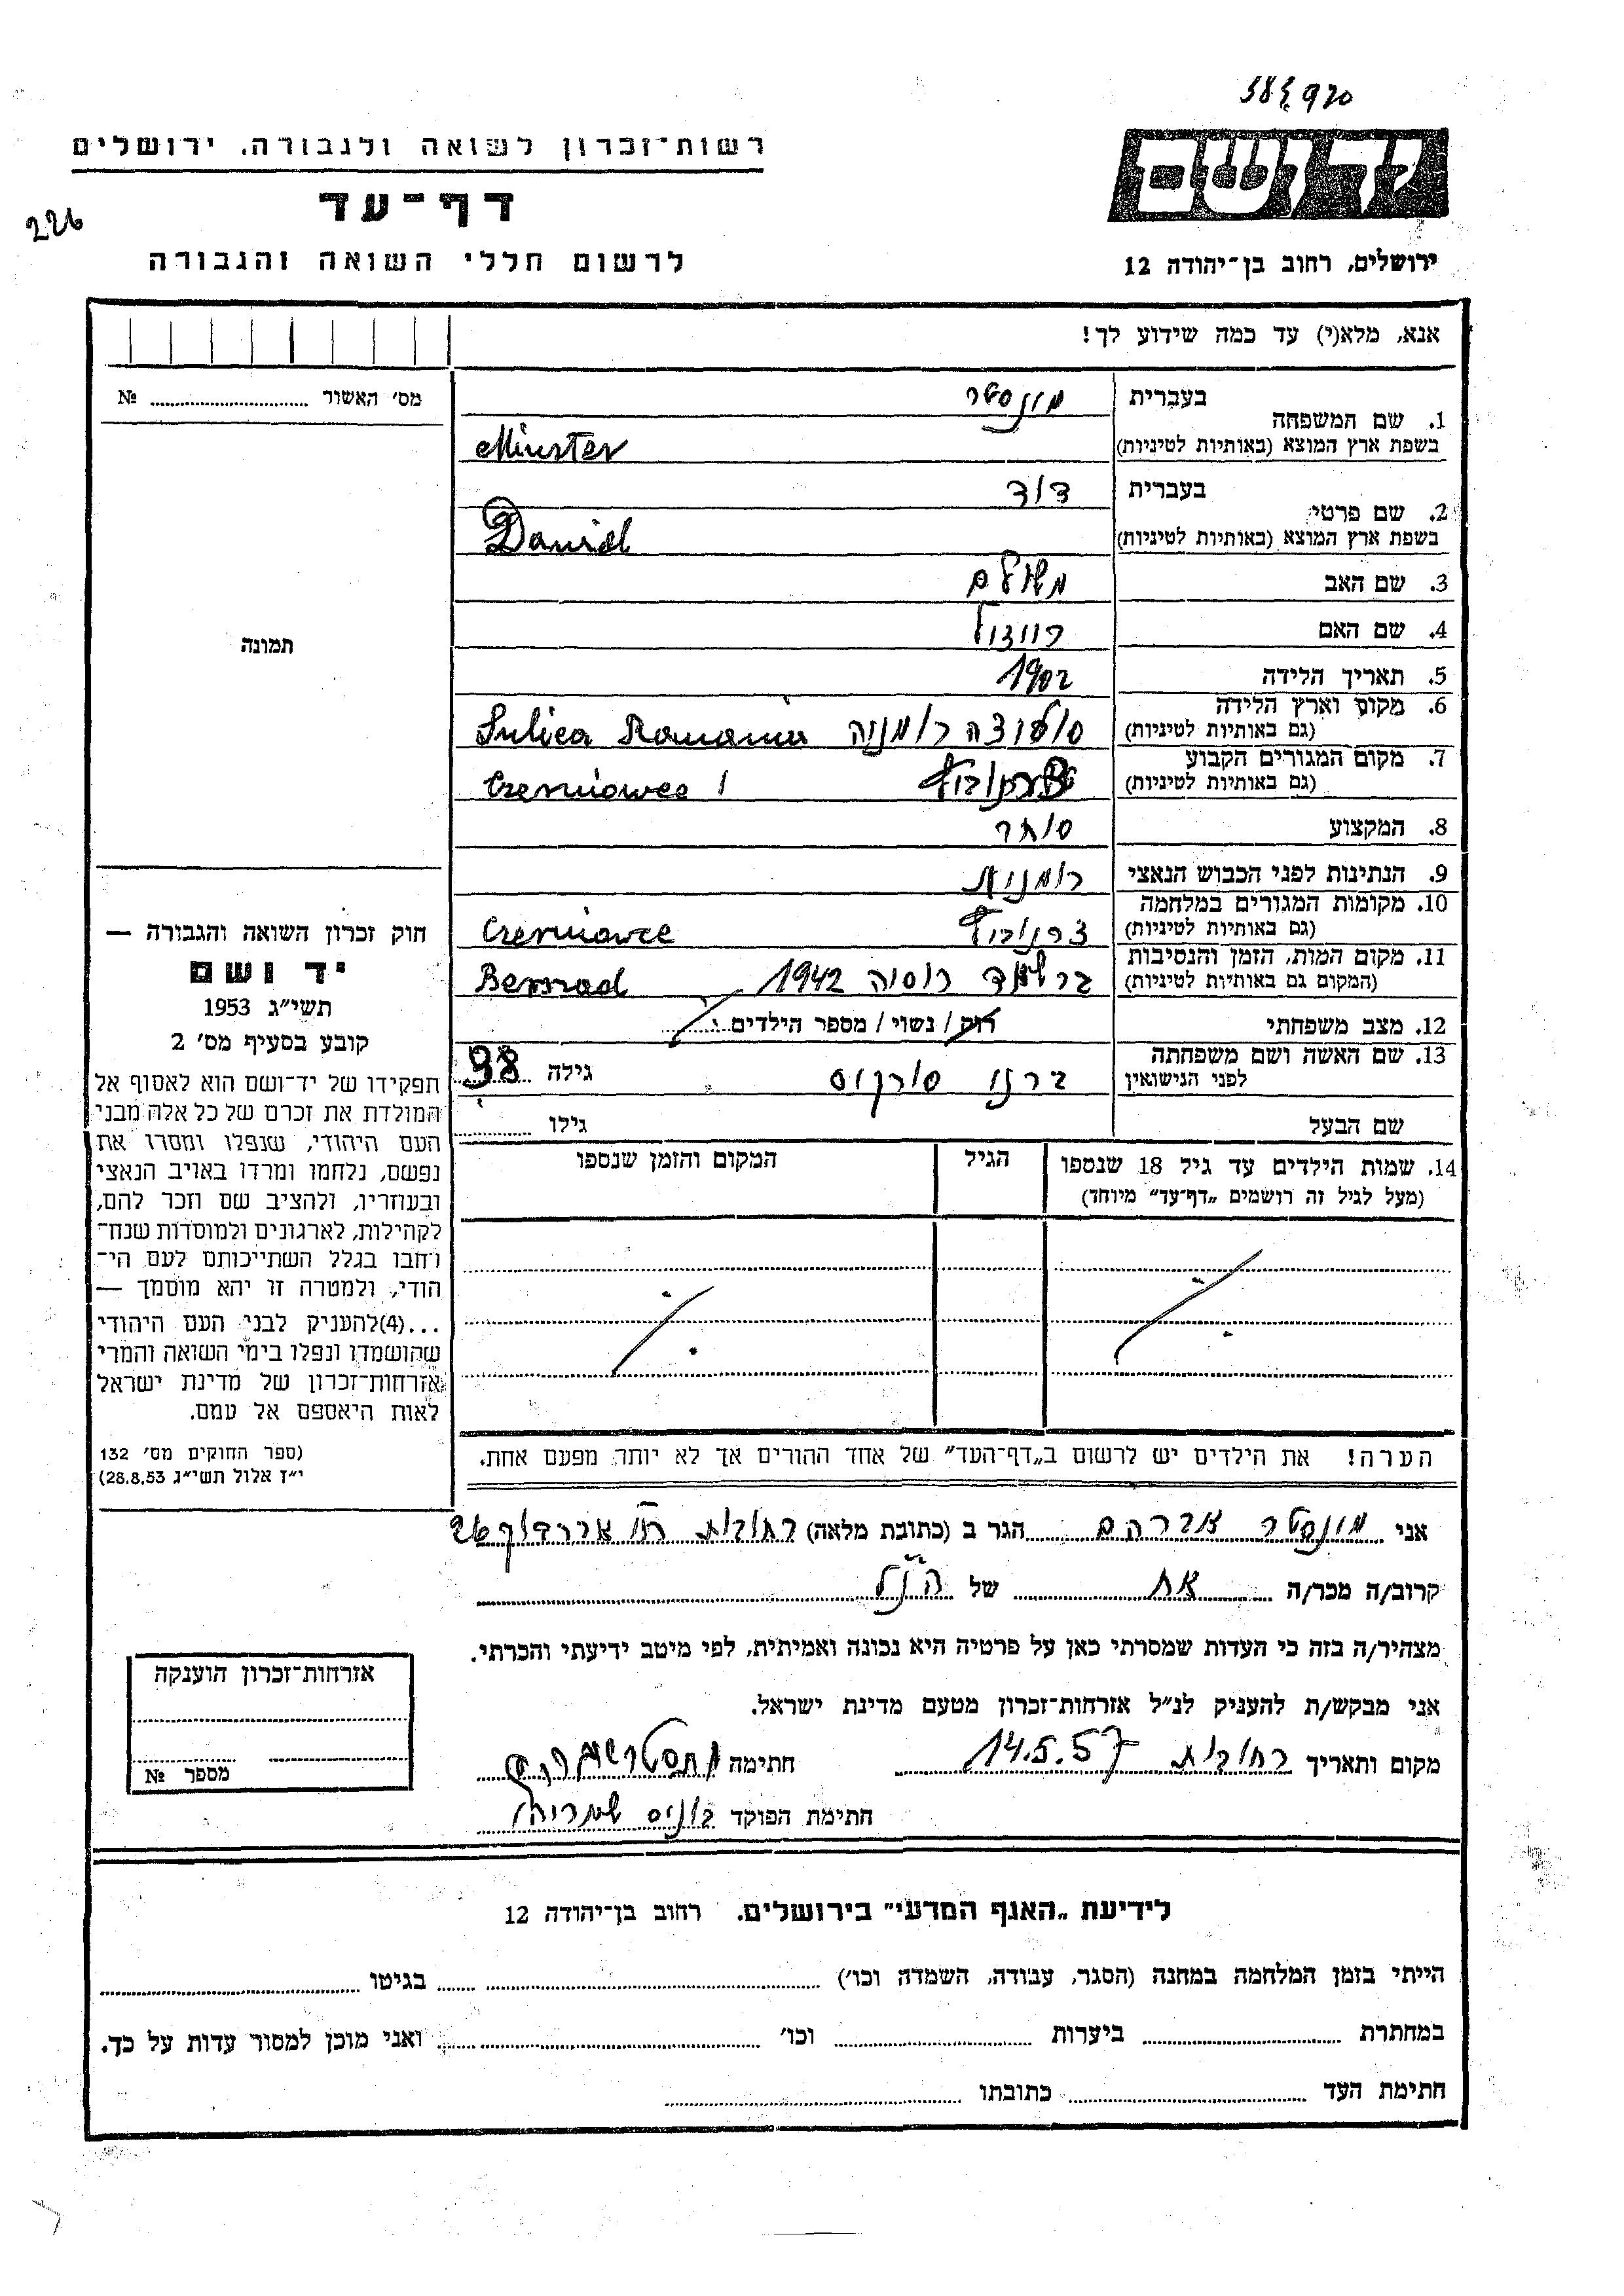 384920
רשות־זכרון לשואה ולגבורה, ירושלים
יד ושם
דף־עד
226
לרשום חללי השואה והגבורה
ירושלים, רחוב בן־יהודה 12
אנא, מלא(י) עד כמה שידוע לך!
מס׳ האשור № ........
1. שם המשפחה בעברית מונסטר
בשפת ארץ המוצא (באותיות לטיניות) Münster
2. שם פרטי בעברית דוד
בשפת ארץ המוצא (באותיות לטיניות) David
3. שם האב משולם
4. שם האם
5. תאריך הלידה 1902
6. מקום וארץ הלידה (גם באותיות לטיניות) רומניה Romania
7. מקום המגורים הקבוע (גם באותיות לטיניות) Czerniowce
8. המקצוע סוחר
9. הנתינות לפני הכבוש הנאצי רומנית
10. מקומות המגורים במלחמה (גם באותיות לטיניות) צרנוביץ Czerniowce
11. מקום המות, הזמן והנסיבות (המקום גם באותיות לטיניות) ברשד רוסיה 1942
12. מצב משפחתי רוק / נשוי / מספר הילדים
13. שם האשה ושם משפחתה לפני הנישואין ברנו מרקוס גילה 38
שם הבעל גילו
14. שמות הילדים עד גיל 18 שנספו הגיל המקום והזמן שנספו
(מעל לגיל זה רושמים „דף־עד״ מיוחד)
הערה! את הילדים יש לרשום ב„דף־העד״ של אחד ההורים אך לא יותר מפעם אחת.
תמונה
חוק זכרון השואה והגבורה —
יד ושם
תשי״ג 1953
קובע בסעיף מס׳ 2
תפקידו של יד־ושם הוא לאסוף אל
המולדת את זכרם של כל אלה מבני
העם היהודי, שנפלו ומסרו את
נפשם, נלחמו ומרדו באויב הנאצי
ובעוזריו, ולהציב שם וזכר להם,
לקהילות, לארגונים ולמוסדות שנח־
רבו בגלל השתייכותם לעם הי־
הודי, ולמטרה זו יהא מוסמך —
...(4)להעניק לבני העם היהודי
שהושמדו ונפלו בימי השואה והמרי
אזרחות־זכרון של מדינת ישראל
לאות היאספם אל עמם.
(ספר החוקים מס׳ 132
י״ז אלול תשי״ג 28.8.53)
אני מונסטר אברהם הגר ב (כתובת מלאה) רחובות
קרוב/ה מכר/ה אח של הנ״ל
מצהיר/ה בזה כי העדות שמסרתי כאן על פרטיה היא נכונה ואמיתית, לפי מיטב ידיעתי והכרתי.
אני מבקש/ת להעניק לנ״ל אזרחות־זכרון מטעם מדינת ישראל.
מקום ותאריך רחובות 14.5.57 חתימה
חתימת הפוקד
אזרחות־זכרון הוענקה
מספר №
לידיעת „האגף המדעי״ בירושלים. רחוב בן־יהודה 12
הייתי בזמן המלחמה במחנה (הסגר, עבודה, השמדה וכו׳) ........ בגיטו ........
במחתרת ........ ביערות ........ וכו׳ ........ ואני מוכן למסור עדות על כך.
חתימת העד ........ כתובתו ........